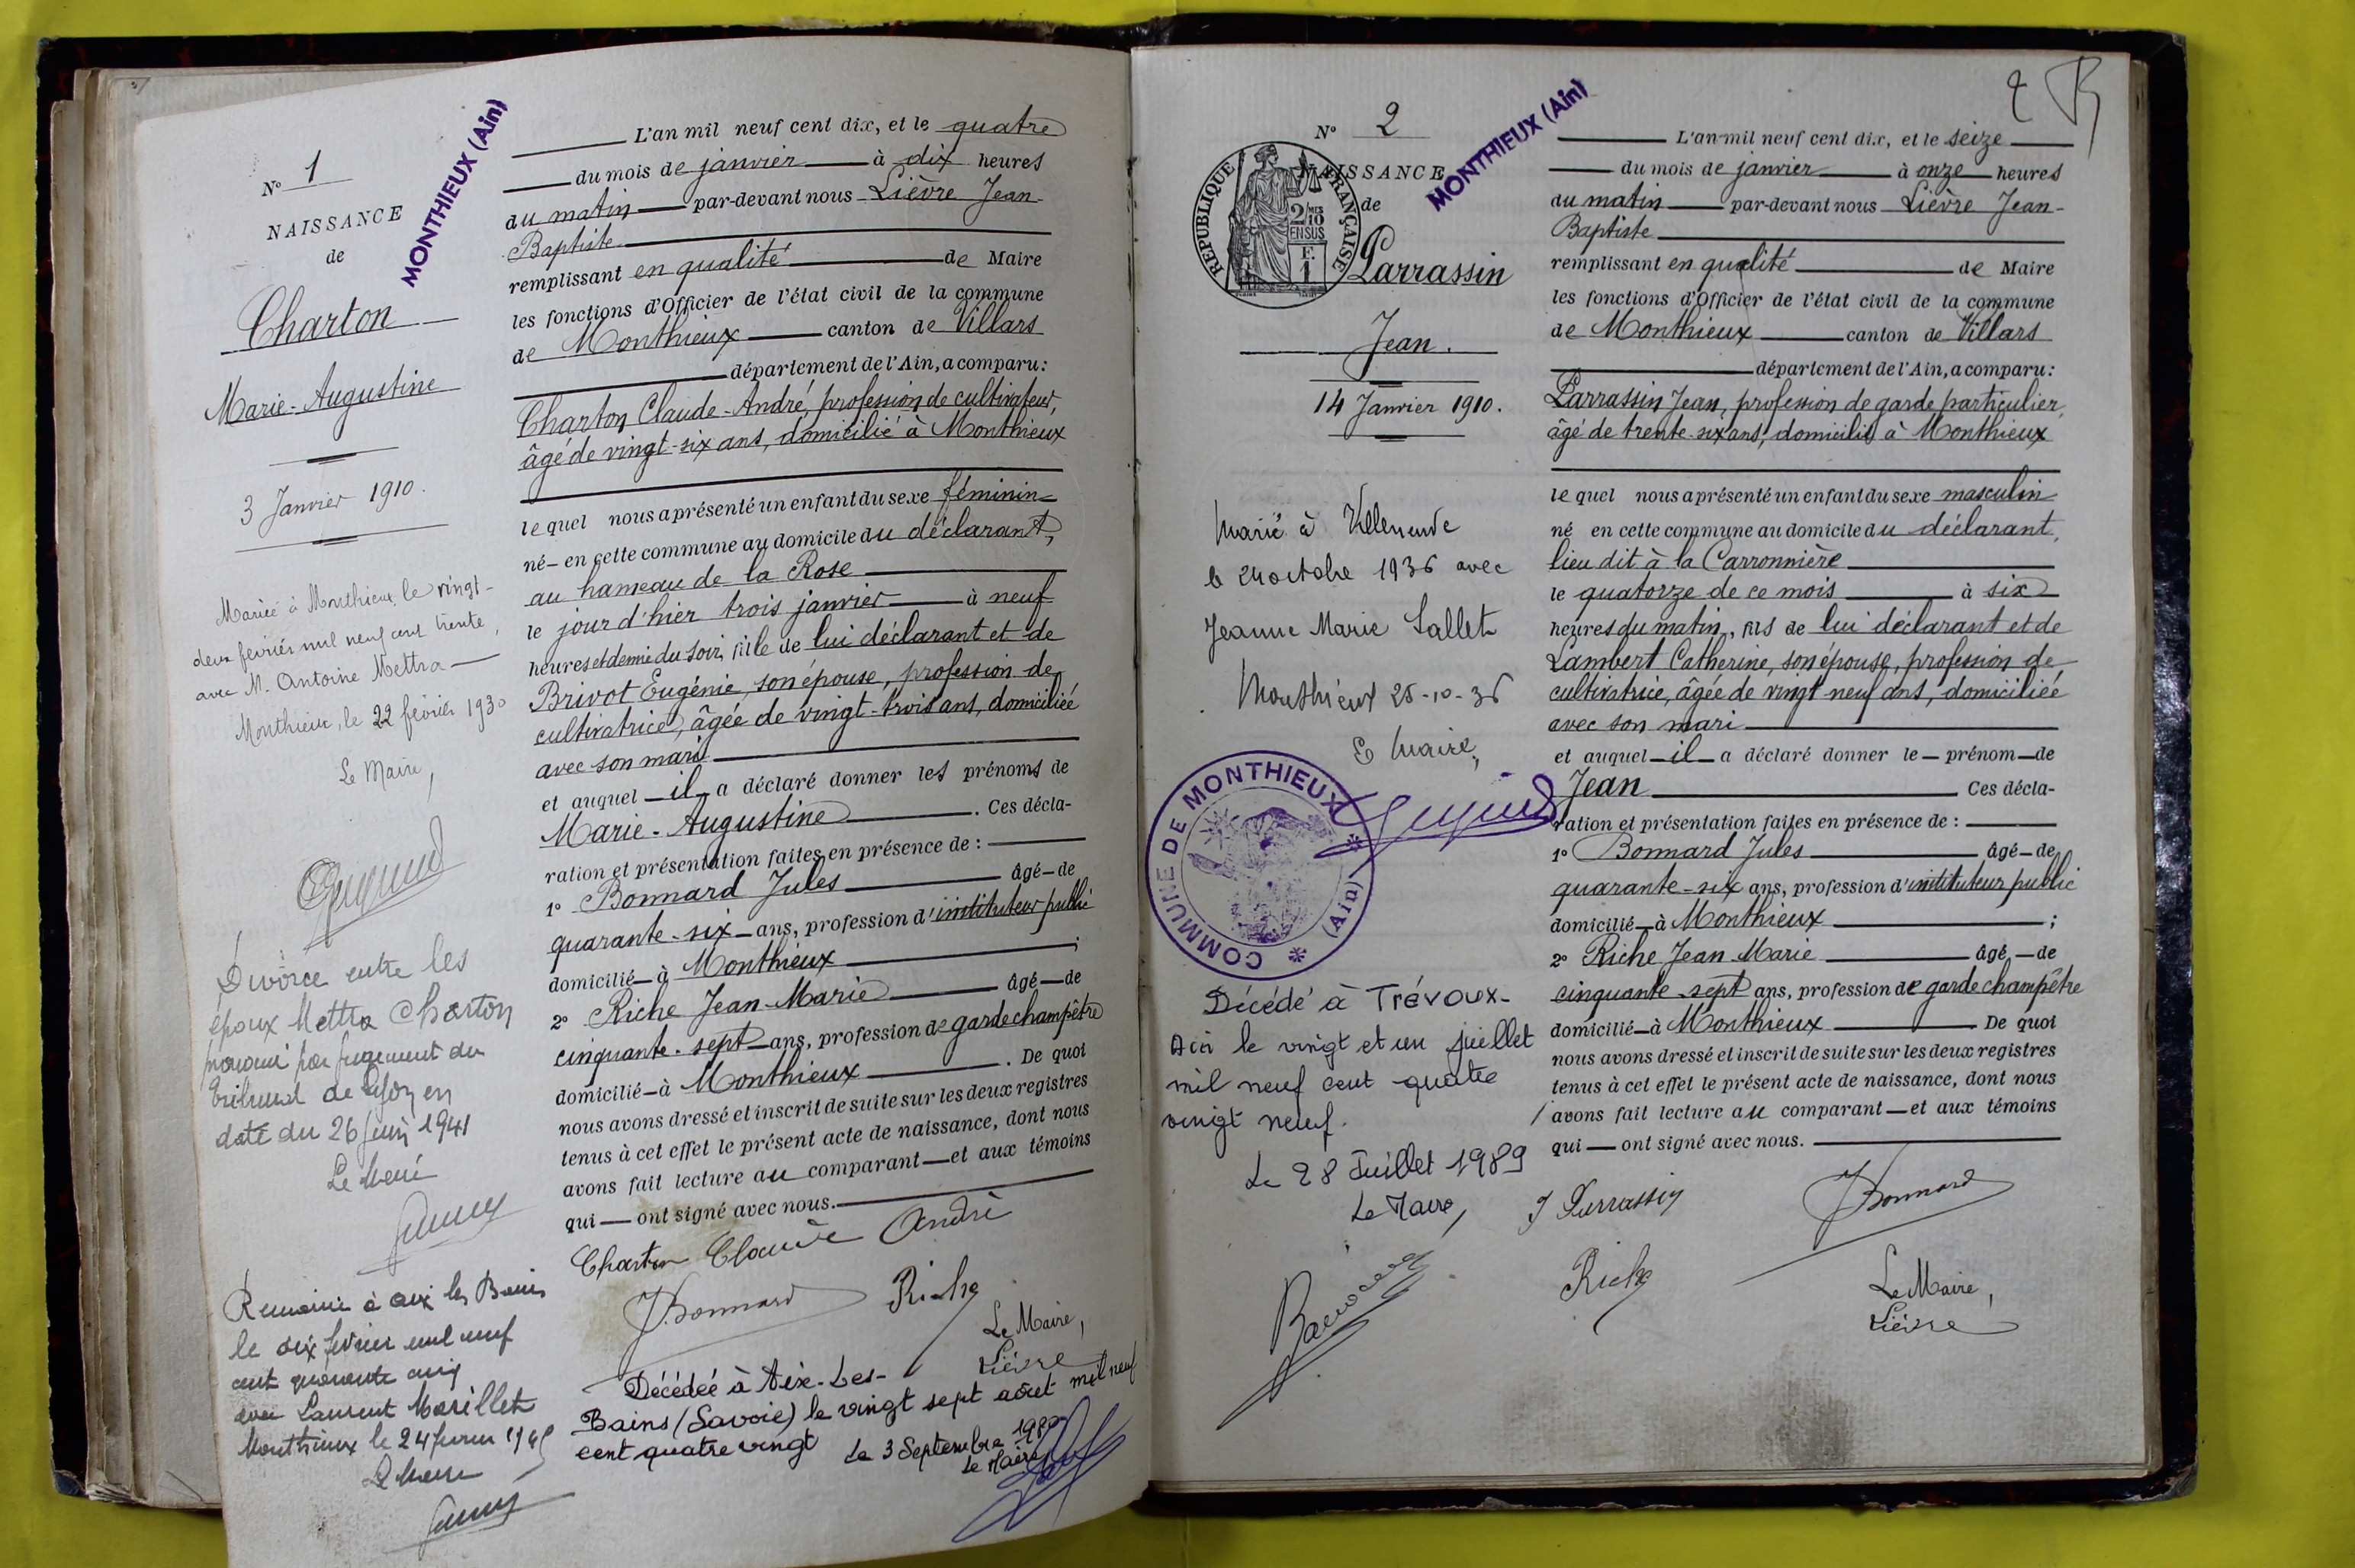 N° 1
NAISSANCE
de
Charton
Marie-Augustine
3 Janvier 1910.
MONTHIEUX (Ain)
Mariée à Monthieux, le vingt-
deux février mil neuf cent trente,
avec M. Antoine Mettra
Monthieux, le 22 février 1930
Le Maire,
Divorce entre les
époux Mettra Charton
prononcé par jugement du
Tribunal de Lyon en
date du 26 juin 1941
Le Maire
Remariée à Aix les Bains
le dix février mil neuf
cent quarante cinq
avec Laurent
Monthieux le 24 février 1945
Le Maire
L'an mil neuf cent dix, et le quatre
du mois de janvier à dix heures
du matin par-devant nous Lièvre Jean-
Baptiste
remplissant en qualité de Maire
les fonctions d'Officier de l'état civil de la commune
de Monthieux canton de Villars
département de l'Ain, a comparu:
Charton Claude-André, profession de cultivateur,
âgé de vingt-six ans, domicilié à Monthieux
lequel nous a présenté un enfant du sexe féminin
né en cette commune au domicile du déclarant,
au hameau de la Rose
le jour d'hier trois janvier à neuf
heures et demie du soir, fille de lui déclarant et de
Brivot Eugénie, son épouse, profession de
cultivatrice, âgée de vingt-trois ans, domiciliée
avec son mari
et auquel il a déclaré donner les prénoms de
Marie-Augustine. Ces décla-
ration et présentation faites en présence de :
1° Bonnard Jules âgé de
quarante-six ans, profession d'instituteur public
domicilié à Monthieux ;
2° Riche Jean-Marie âgé de
cinquante-sept ans, profession de garde champêtre
domicilié à Monthieux. De quoi
nous avons dressé et inscrit de suite sur les deux registres
tenus à cet effet le présent acte de naissance, dont nous
avons fait lecture au comparant et aux témoins
qui ont signé avec nous.
Charton Claude André
J. Bonnard Riche
Le Maire,
Lièvre
Décédée à Aix-Les-
Bains (Savoie) le vingt sept août mil neuf
cent quatre vingt le 3 Septembre 1980
Le Maire
2
N° 2
NAISSANCE
de
REPUBLIQUE FRANÇAISE
2/10 MES
EN SUS
F.
1
MONTHIEUX (Ain)
Parrassin
Jean.
14 Janvier 1910.
Marié à Villeneuve
le 24 octobre 1936 avec
Jeanne Marie Sallet
Monthieux 25-10-36
Le Maire,
COMMUNE DE MONTHIEUX (Ain)
Décédé à Trévoux-
Ain le vingt et un juillet
mil neuf cent quatre
vingt neuf.
Le 28 Juillet 1989
Le Maire,
L'an mil neuf cent dix, et le seize
du mois de janvier à onze heures
du matin par-devant nous Lièvre Jean-
Baptiste
remplissant en qualité de Maire
les fonctions d'Officier de l'état civil de la commune
de Monthieux canton de Villars
département de l'Ain, a comparu:
Parrassin Jean, profession de garde particulier,
âgé de trente-six ans, domicilié à Monthieux
lequel nous a présenté un enfant du sexe masculin
né en cette commune au domicile du déclarant,
lieu dit à la Carronnière
le quatorze de ce mois à six
heures du matin, fils de lui déclarant et de
Lambert Catherine, son épouse, profession de
cultivatrice, âgée de vingt-neuf ans, domiciliée
avec son mari
et auquel il a déclaré donner le prénom de
Jean Ces décla-
ration et présentation faites en présence de :
1° Bonnard Jules âgé de
quarante-six ans, profession d'instituteur public
domicilié à Monthieux ;
2° Riche Jean-Marie âgé de
cinquante-sept ans, profession de garde champêtre
domicilié à Monthieux De quoi
nous avons dressé et inscrit de suite sur les deux registres
tenus à cet effet le présent acte de naissance, dont nous
avons fait lecture au comparant et aux témoins
qui ont signé avec nous.
J Parrassin J Bonnard
Riche
Le Maire,
Lièvre